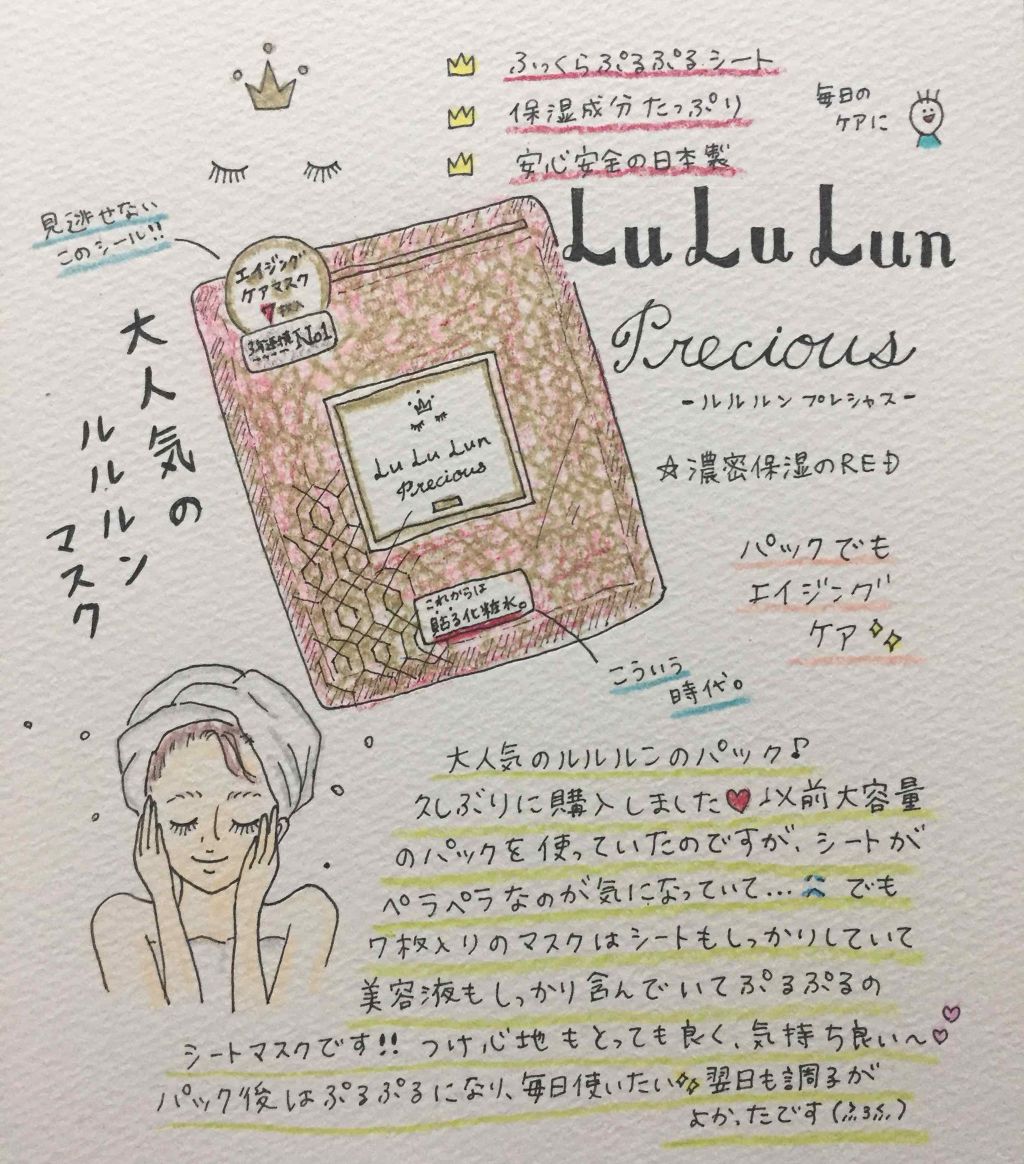 ふっくらぷるぷるシート
保湿成分たっぷり
安心安全の日本製
毎日の
ケアに
見逃せない
このシール!!
LuLuLun
Precious
-ルルルン プレシャス-
☆濃密保湿のRED
大人気の
ルルルン
マスク
エイジング
ケアマスク
7枚入
3年連続No1
Lu Lu Lun
Precious
これからは
貼る化粧水。
こういう
時代。
パックでも
エイジング
ケア
大人気のルルルンのパック♪
久しぶりに購入しました♥以前大容量
のパックを使っていたのですが、シートが
ペラペラなのが気になっていて...でも
7枚入りのマスクはシートもしっかりしていて
美容液もしっかり含んでいてぷるぷるの
シートマスクです!!つけ心地もとっても良く、気持ち良い〜
パック後はぷるぷるになり、毎日使いたい 翌日も調子が
よかったです